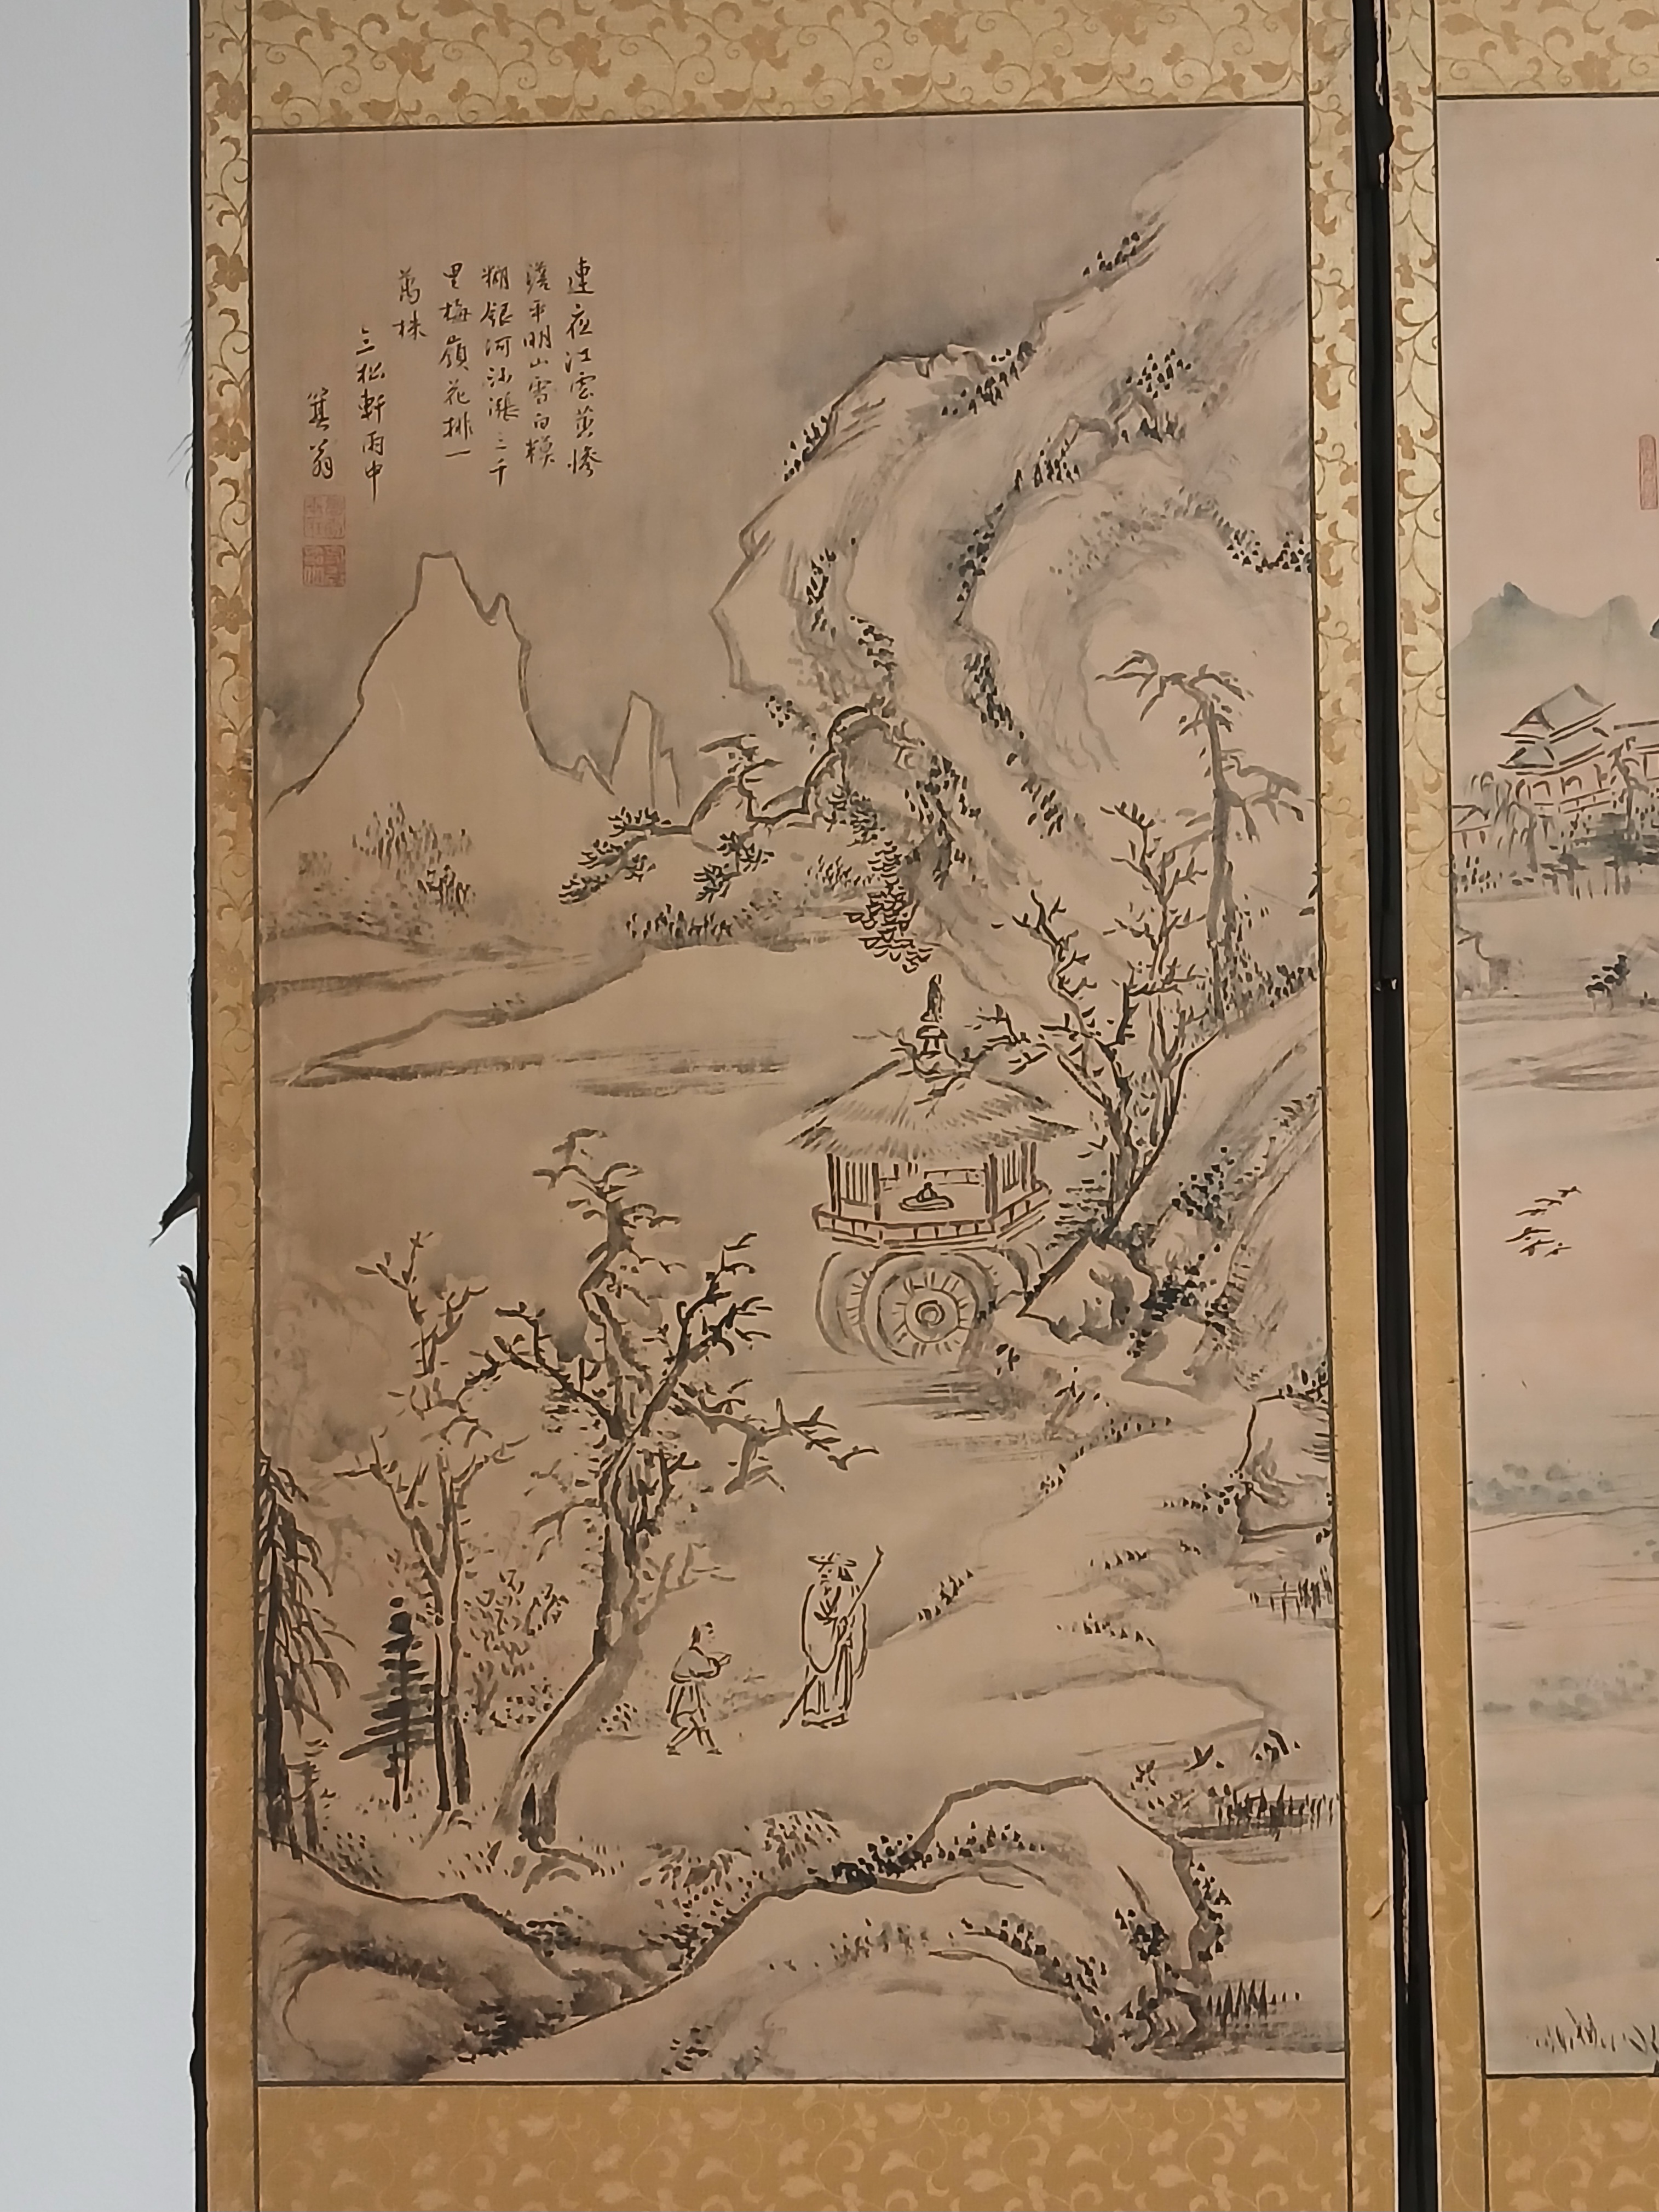 連夜江雲黃慘
澹平明山雪白模
糊銀河沙漲三千
里梅嶺花排一
萬株
三松軒雨中
箕翁